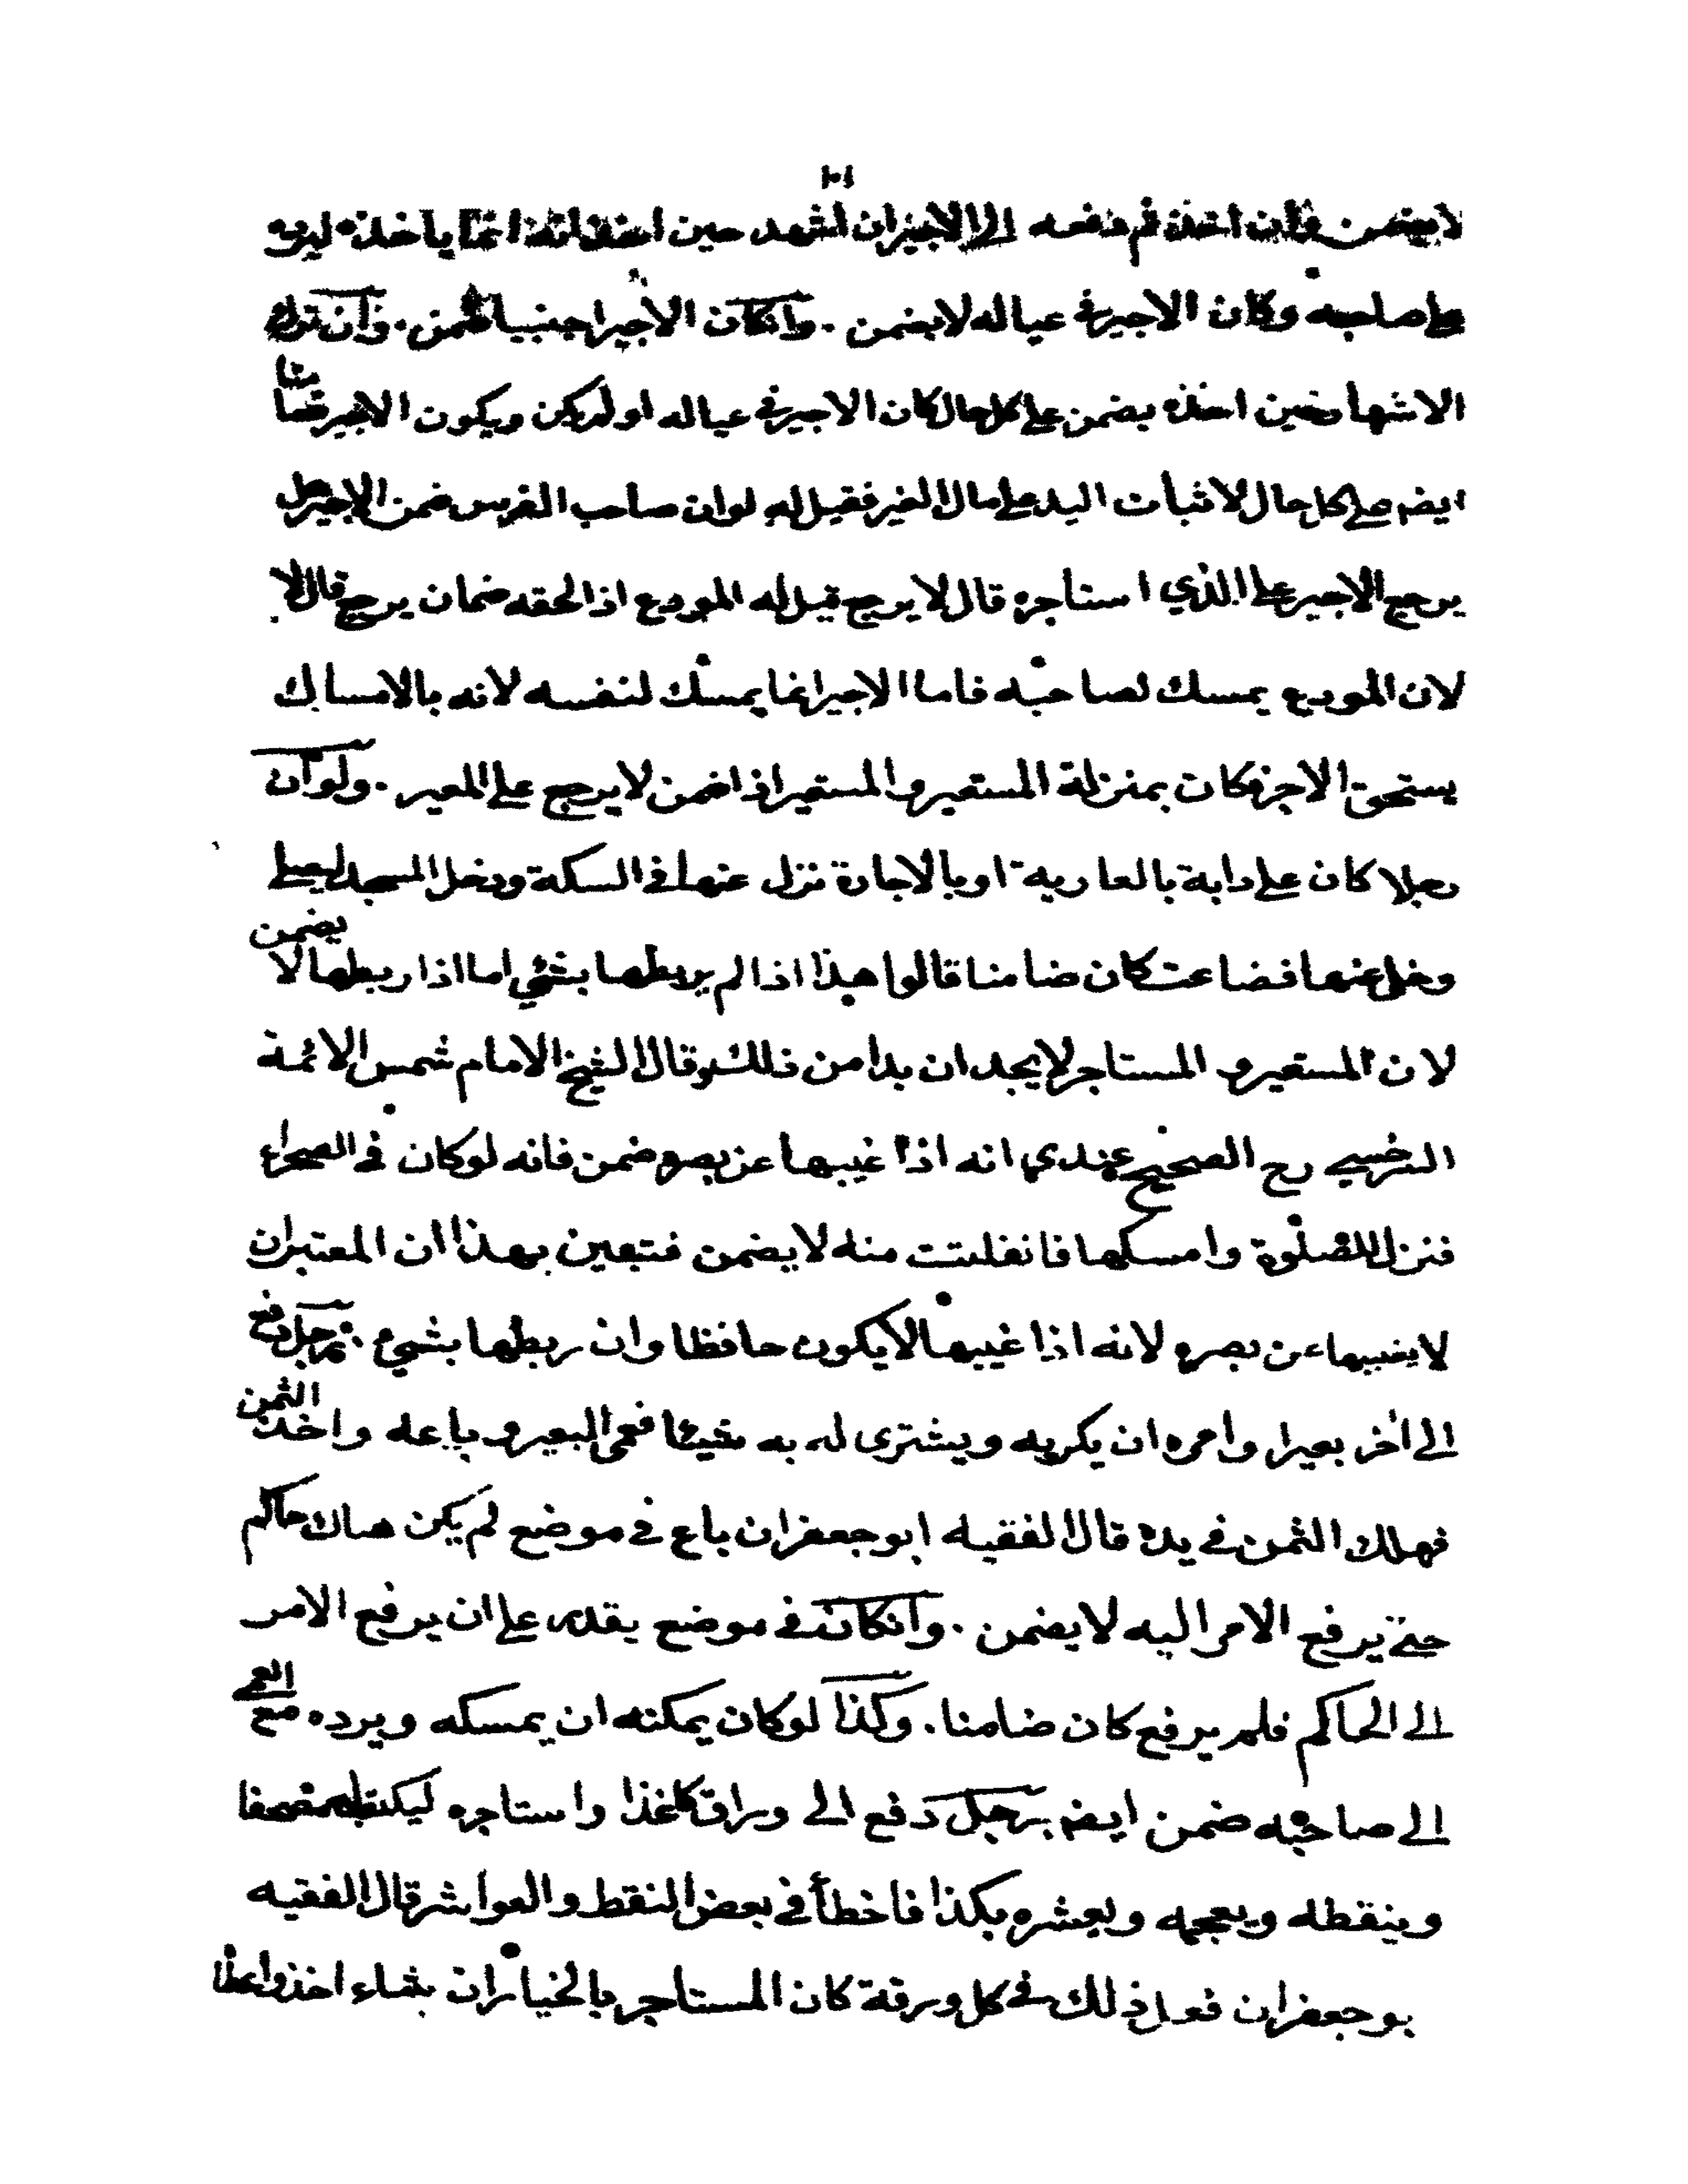 ١٠١
لا يضمن وان اخذه ثم دفعه الى الاجير ان اشهد حين اخذ انه انما ياخذه ليرده
على صاحبه وكان الاجير في عياله لا يضمن . وانكان الاجير اجنبيا ضمن . وان ترك
الاشهاد حين اخذه يضمن على كل حال كان الاجير في عياله او لم يكن ويكون الاجير ضامنا
ايضم على كل حال لاثبات اليد على مال الغير فقيل له لو ان صاحب الفرس ضمن الاجير هل
يرجع الاجير على الذي استاجره قال لا يرجع قيل له المودع اذا لحقه ضمان يرجع قال لا
لان المودع يمسك لصاحبه فاما الاجير انما يمسك لنفسه لانه بالامساك
يستحق الاجر فكان بمنزلة المستعير والمستعير اذا ضمن لا يرجع على المعير . ولو ان
رجلا كان على دابة بالعارية او بالاجارة نزل عنها في السكة ودخل المسجد ليصلي
وخلى عنها فضاعت كان ضامنا قالوا هذا اذا لم يربطها بشئ اما اذا ربطها لا يضمن
لان المستعير والمستاجر لا يجد ان بدا من ذلك وقال الشيخ الامام شمس الائمة
السرخسي رح الصحيح عندي انه اذا غيبها عن بصره ضمن فانه لو كان في الصحراء
فنزل للصلوة وامسكها فانفلتت منه لا يضمن فتبعين بهذا ان المعتبر ان
لا يغيبها عن بصره لانه اذا غيبها لا يكون حافظا وان ربطها بشئ . رجل دفع
الى اخر بعيرا وامره ان يكريه ويشترى له به شيئا فعمى البعير وباعه واخذ الثمن
فهلك الثمن في يده قال الفقيه ابو جعفر ان باع في موضع لم يكن هناك حاكم
حتى يرفع الامر اليه لا يضمن . وانكان في موضع يقدر على ان يرفع الامر
الى الحاكم فلم يرفع كان ضامنا . وكذا لو كان يمكنه ان يمسكه ويرده مع العمى
الى صاحبه ضمن ايضم رجل دفع الى وراق كاغذا واستاجره ليكتب له مصحفا
وينقطه ويعجمه ويعشره بكذا فاخطأ في بعض النقط والعواشر قال الفقيه
بو جعفر ان فعل ذلك في كل ورقة كان المستاجر بالخيار ان شاء اخذ واعطا